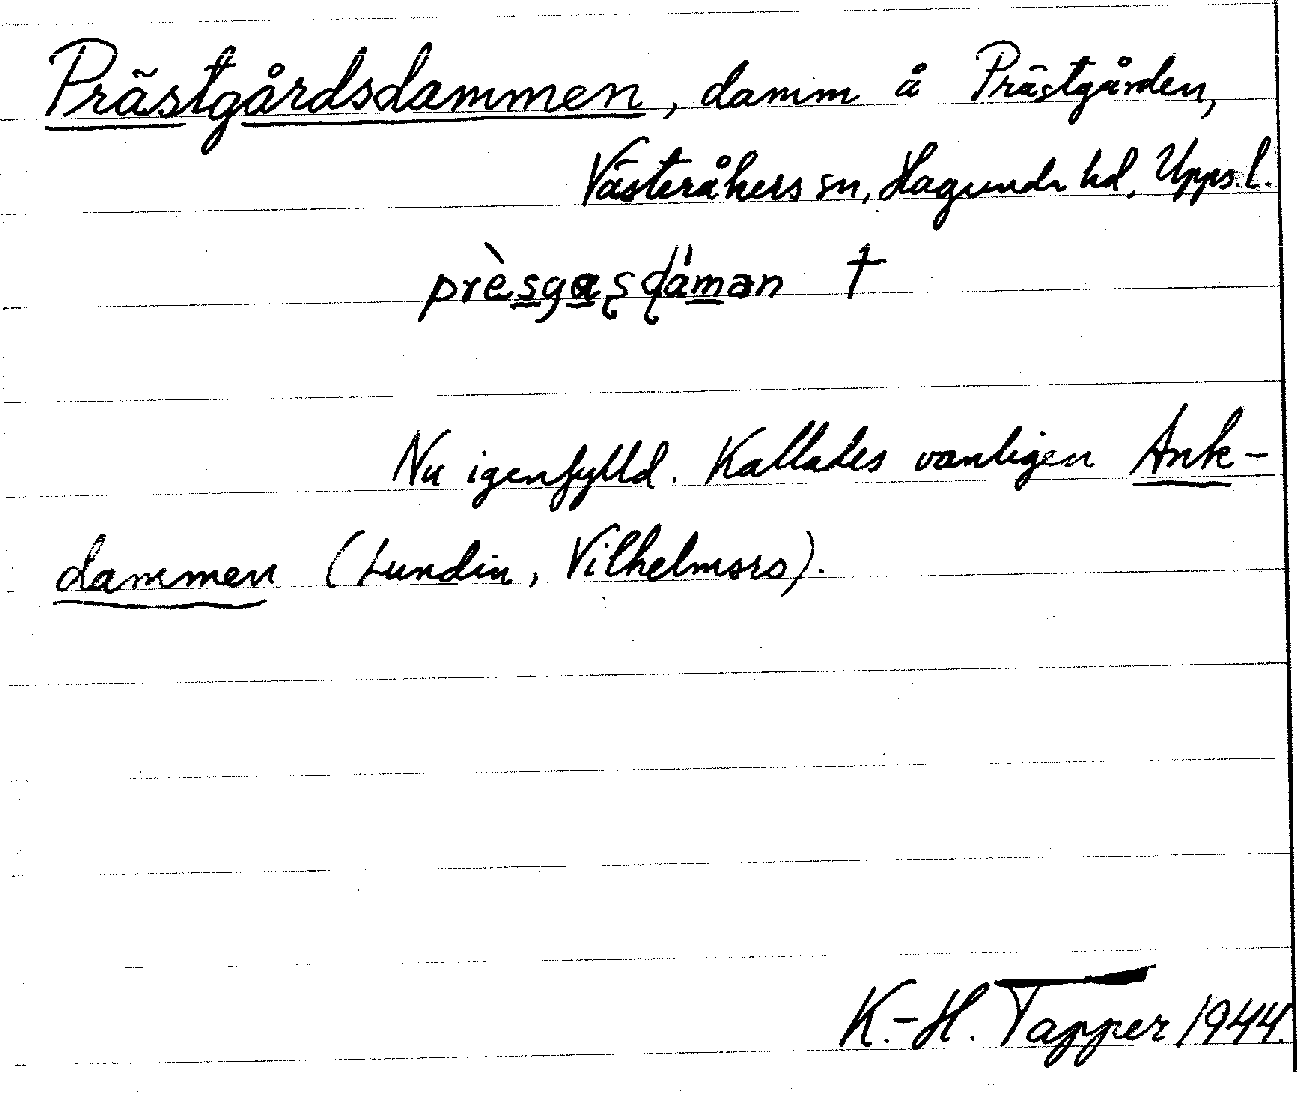 Prästgårdsdammen, damm å Prästgården,
Västeråkers sn, Hagunda hd, Upps. l.
prèsgaʂɖáman †
Nu igenfylld. Kallades vanligen Ank-
dammen (Lundin, Vilhelmsro).
K.-H. Tapper 1944.